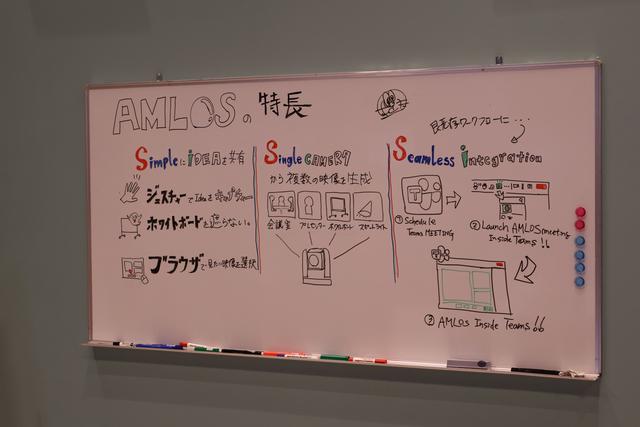 AMLOSの特長
既存ワークフローに...
SimpleにiDEAを共有
ジェスチャーでIdeaをキャプチャー
ホワイトボードを遮らない。
ブラウザで見たい映像を選択
Single CAMERA
から複数の映像を生成
会議室 プレゼンター ホワイトボード スポットライト
Seamless integration
① Schedule
Teams MEETING
② Launch AMLOS meeting
Inside Teams!!
③ AMLOS Inside Teams!!